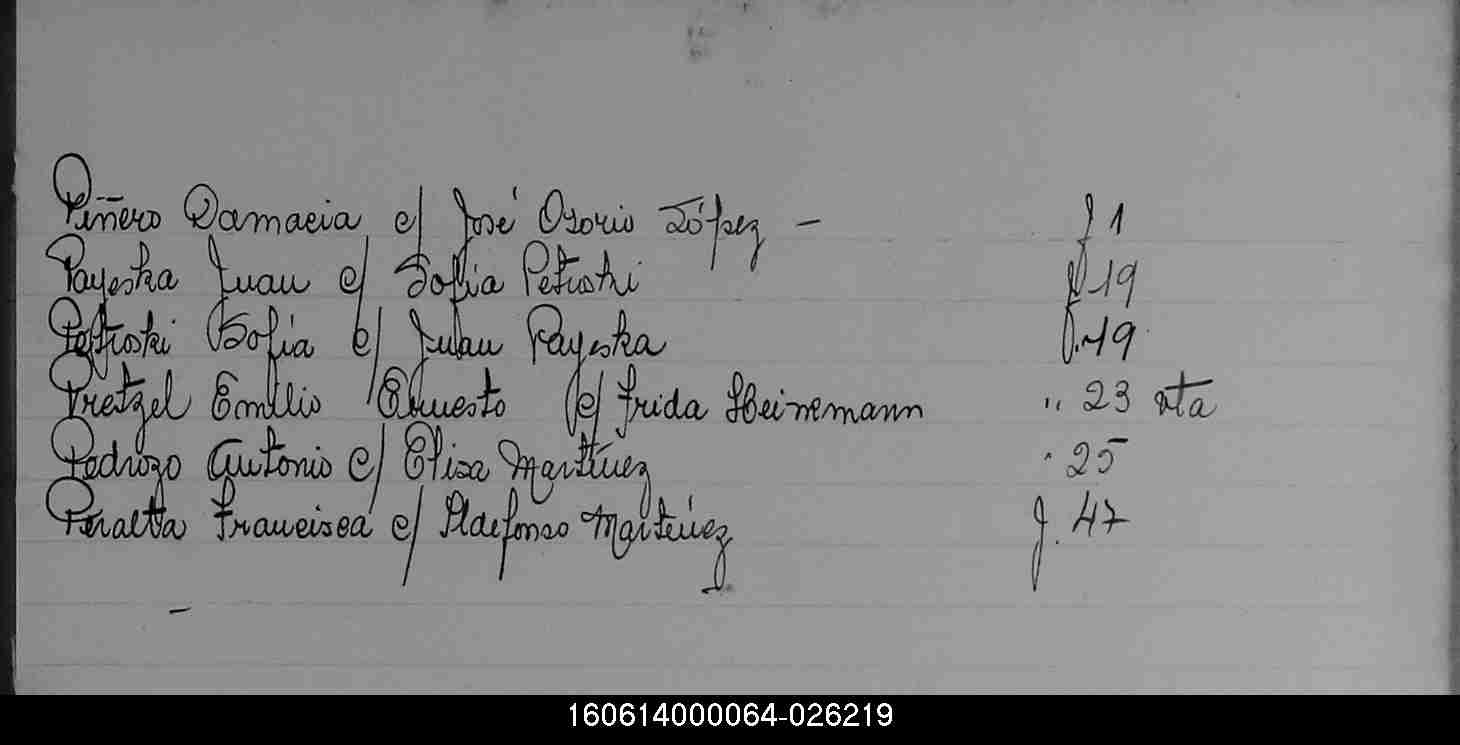 Piñero Damacia c/ José Osorio López - f 1
Payeska Juan c/ Sofia Petroski f 19
Petroski Sofia c/ Juan Payeska f. 19
Pretzel Emilio Ernesto c/ Frida Heinemann " 23 vta
Pedrozo Antonio c/ Elisa Martínez " 25
Peralta Francisca c/ Ildefonso Martínez f. 47
-
160614000064-026219